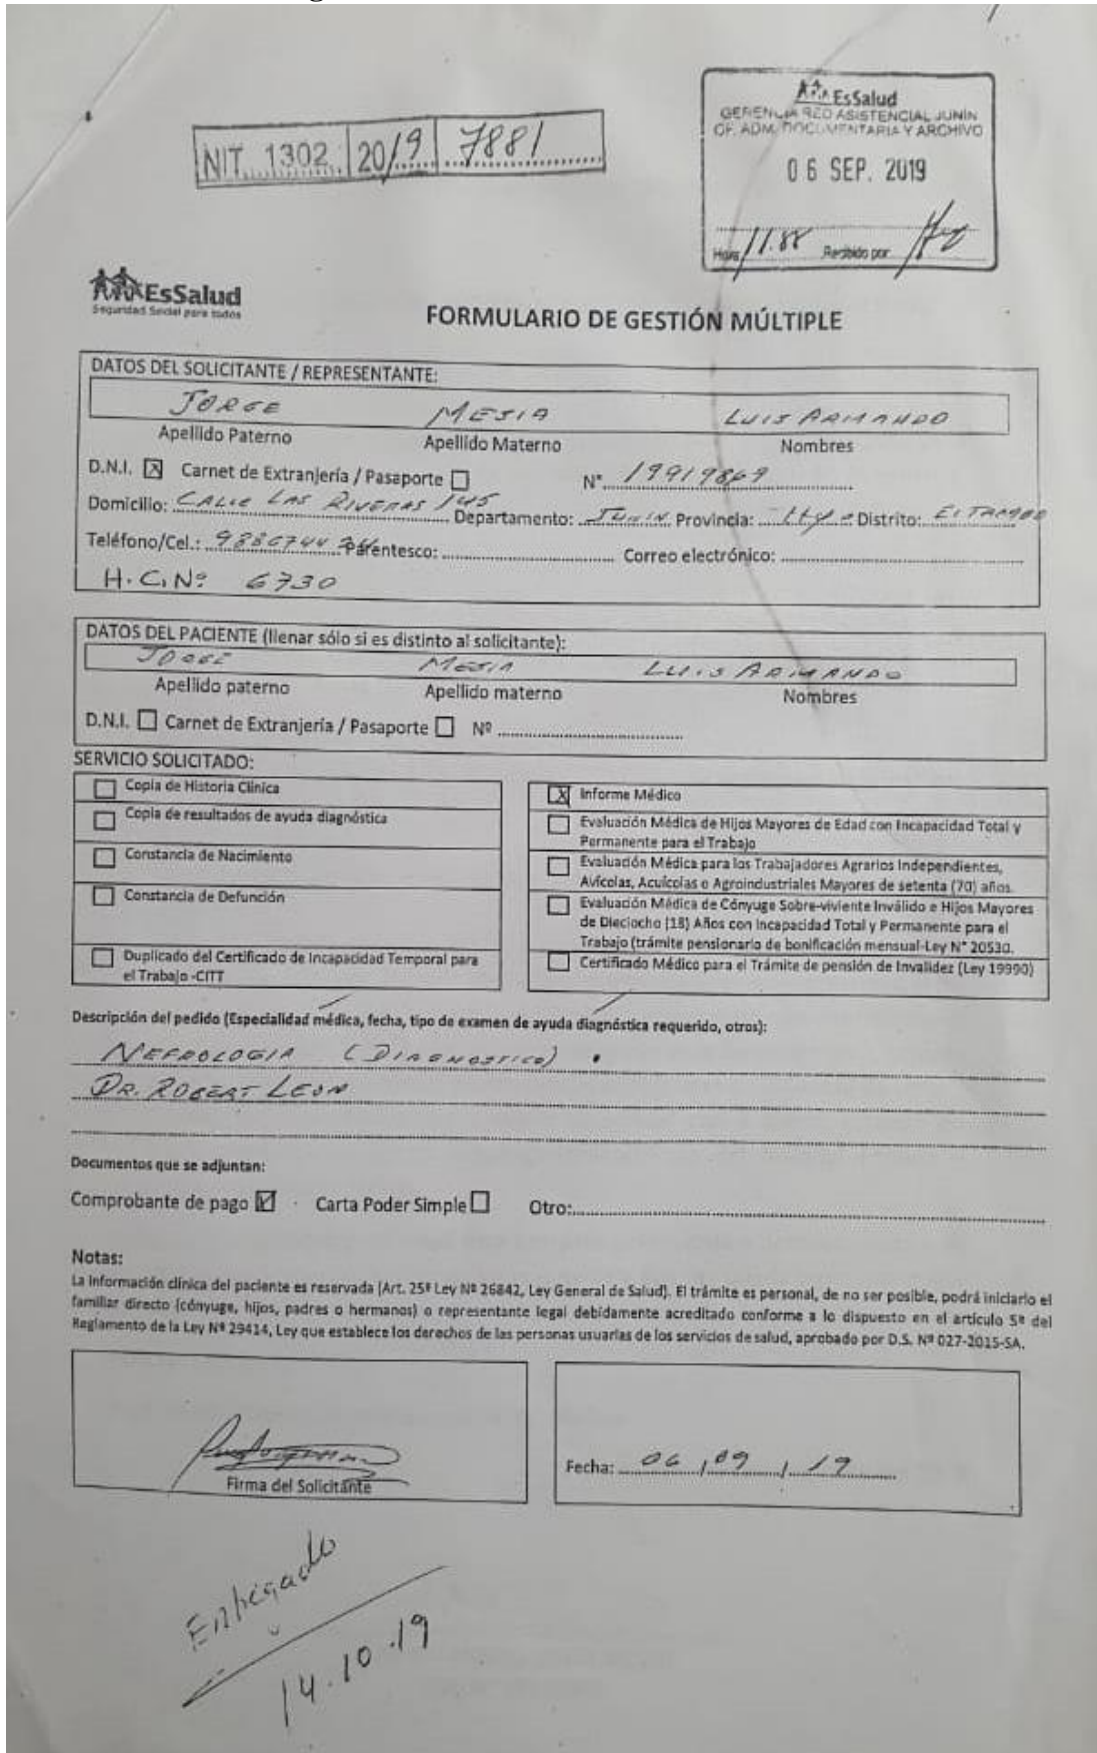 NIT. 1302 2019 7881
EsSalud
GERENCIA RED ASISTENCIAL JUNÍN
OF. ADM. DOCUMENTARIA Y ARCHIVO
06 SEP. 2019
Hora 11.88 Recibido por
EsSalud
Seguridad Social para todos
FORMULARIO DE GESTIÓN MÚLTIPLE
DATOS DEL SOLICITANTE / REPRESENTANTE:
JORGE MESIA LUIS ARMANDO
Apellido Paterno Apellido Materno Nombres
D.N.I. X Carnet de Extranjería / Pasaporte N° 19919869
Domicilio: CALLE LAS RIVERAS 145 Departamento: JUNIN Provincia: Hyo Distrito: EL TAMBO
Teléfono/Cel.: Parentesco: Correo electrónico:
H.C.Nº 6730
DATOS DEL PACIENTE (llenar sólo si es distinto al solicitante):
JORGE MESIA LUIS ARMANDO
Apellido paterno Apellido materno Nombres
D.N.I. Carnet de Extranjería / Pasaporte Nº
SERVICIO SOLICITADO:
Copia de Historia Clínica
Copia de resultados de ayuda diagnóstica
Constancia de Nacimiento
Constancia de Defunción
Duplicado del Certificado de Incapacidad Temporal para
el Trabajo -CITT
X Informe Médico
Evaluación Médica de Hijos Mayores de Edad con Incapacidad Total y
Permanente para el Trabajo
Evaluación Médica para los Trabajadores Agrarios Independientes,
Avícolas, Acuícolas o Agroindustriales Mayores de setenta (70) años.
Evaluación Médica de Cónyuge Sobre-viviente Inválido e Hijos Mayores
de Dieciocho (18) Años con Incapacidad Total y Permanente para el
Trabajo (trámite pensionario de bonificación mensual-Ley N° 20530.
Certificado Médico para el Trámite de pensión de Invalidez (Ley 19990)
Descripción del pedido (Especialidad médica, fecha, tipo de examen de ayuda diagnóstica requerido, otros):
NEFROLOGIA (DIAGNOSTICO)
DR. ROBERT LEON
Documentos que se adjuntan:
Comprobante de pago Carta Poder Simple Otro:
Notas:
La información clínica del paciente es reservada (Art. 25º Ley Nº 26842, Ley General de Salud). El trámite es personal, de no ser posible, podrá iniciarlo el
familiar directo (cónyuge, hijos, padres o hermanos) o representante legal debidamente acreditado conforme a lo dispuesto en el artículo 5º del
Reglamento de la Ley Nº 29414, Ley que establece los derechos de las personas usuarias de los servicios de salud, aprobado por D.S. Nº 027-2015-SA.
Firma del Solicitante
Fecha: 06, 09, 19
Entregado
14.10.19